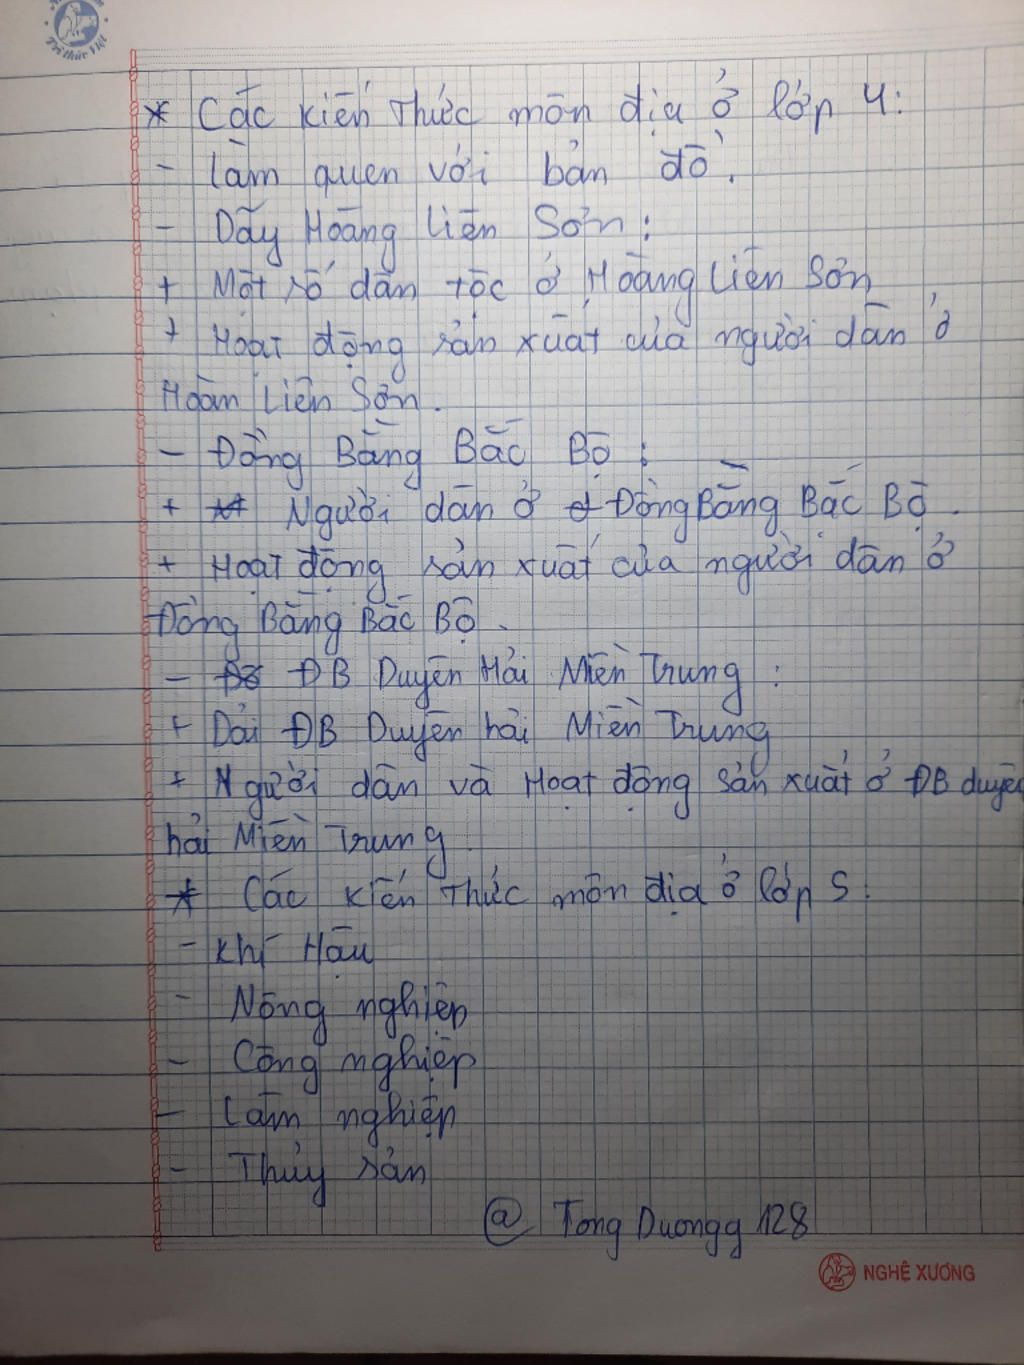 Trí thức Việt
* Các kiến thức môn địa ở lớp 4:
- làm quen với bản đồ.
- Dãy Hoàng Liên Sơn:
+ Một số dân tộc ở Hoàng Liên Sơn
+ Hoạt động sản xuất của người dân ở
Hoàn Liên Sơn.
- Đồng Bằng Bắc Bộ:
+ Người dân ở Đồng Bằng Bắc Bộ.
+ Hoạt động sản xuất của người dân ở
Đồng Bằng Bắc Bộ.
- ĐB Duyên Hải Miền Trung:
+ Dải ĐB Duyên hải Miền Trung
+ Người dân và Hoạt động sản xuất ở ĐB duyên
hải Miền Trung
* Các kiến thức môn địa ở lớp 5:
- Khí Hậu
- Nông nghiệp
- Công nghiệp
- Lâm nghiệp
- Thủy sản
@ Tong Duongg 128
NGHÊ XƯƠNG